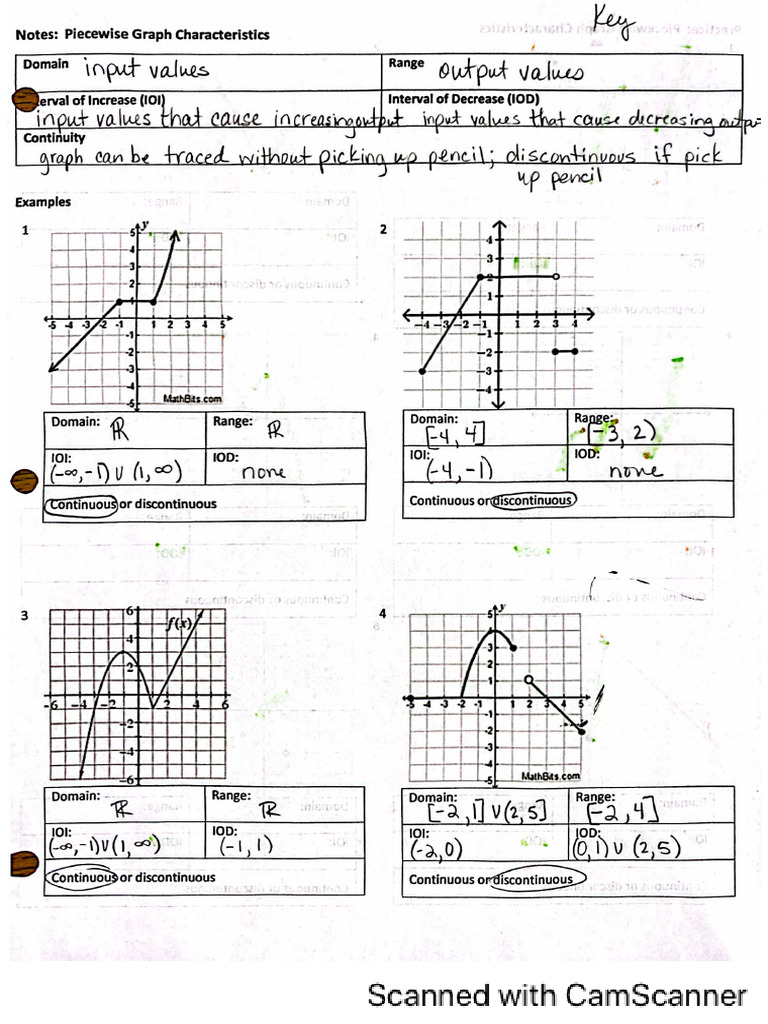 Key
Notes: Piecewise Graph Characteristics
Domain input values
Range output values
erval of Increase (IOI)
input values that cause increasing output
Interval of Decrease (IOD)
input values that cause decreasing output
Continuity
graph can be traced without picking up pencil; discontinuous if pick
up pencil
Examples
1
MathBits.com
Domain: ℝ
Range: ℝ
IOI: (-∞,-1) ∪ (1,∞)
IOD: none
Continuous or discontinuous
2
Domain: [-4, 4]
Range: [-3, 2)
IOI: (-4,-1)
IOD: none
Continuous or discontinuous
3
f(x)
Domain: ℝ
Range: ℝ
IOI: (-∞,-1)∪(1,∞)
IOD: (-1, 1)
Continuous or discontinuous
4
MathBits.com
Domain: [-2,1] ∪ (2,5]
Range: [-2,4]
IOI: (-2,0)
IOD: (0,1) ∪ (2,5)
Continuous or discontinuous
Scanned with CamScanner